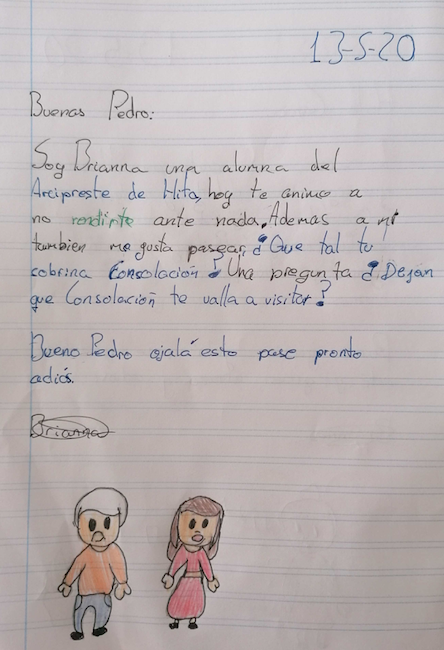 13-5-20
Buenas Pedro:
Soy Brianna una alumna del
Arcipreste de Hita, hoy te animo a
no rendirte ante nada. Ademas a mi
tambien me gusta pasear ¿Que tal tu
sobrina Consolación? Una pregunta ¿Dejan
que Consolación te valla a visitar?
Bueno Pedro ojalá esto pase pronto
adiós.
Brianna